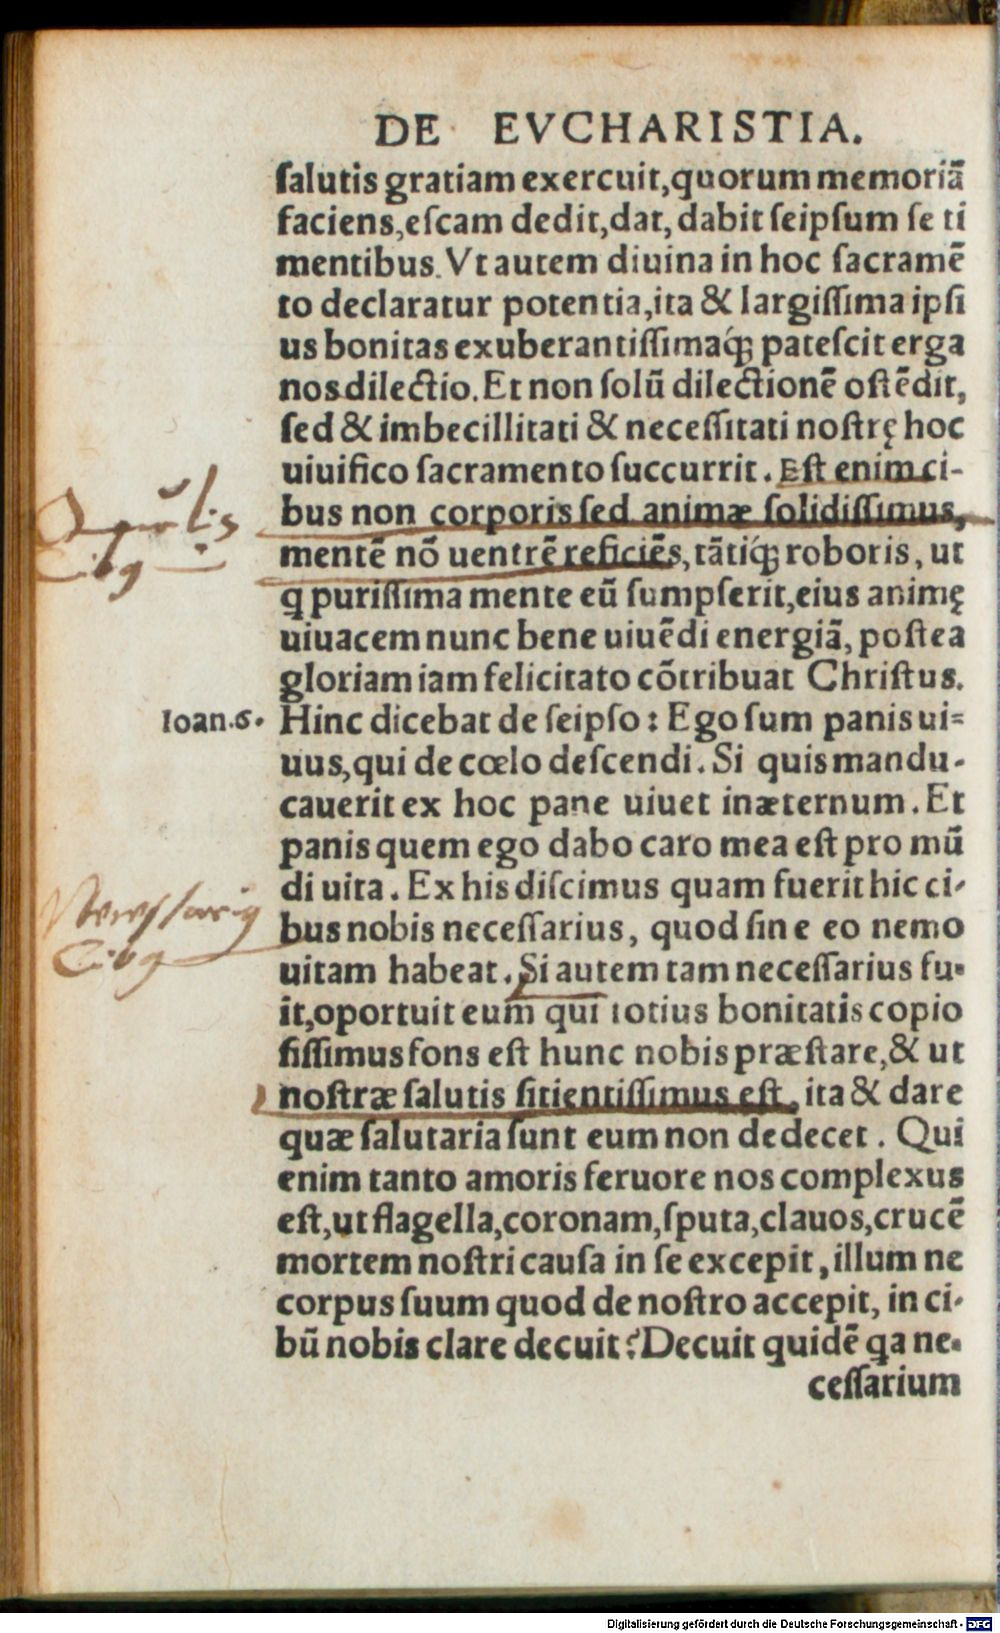 DE EVCHARISTIA.
ſalutis gratiam exercuit,quorum memoriã
faciens,eſcam dedit,dat, dabit ſeipſum ſe ti
mentibus. Vt autem diuina in hoc ſacramẽ
to declaratur potentia,ita & largiſſima ipſi
us bonitas exuberantiſſimaq́; pateſcit erga
nos dilectio. Et non ſolũ dilectionẽ oſtẽdit,
ſed & imbecillitati & neceſſitati noſtrę hoc
uiuifico ſacramento ſuccurrit. Eſt enim ci-
bus non corporis ſed animæ ſolidiſſimus,
Cibꝰ
mentẽ nõ uentrẽ reficiẽs, tãtiq́; roboris, ut
q puriſſima mente eũ ſumpſerit,eius animę
uiuacem nunc bene uiuẽdi energiã, poſtea
gloriam iam felicitato cõtribuat Chriſtus.
Ioan.6. Hinc dicebat de ſeipſo: Ego ſum panis ui=
uus,qui de cœlo deſcendi. Si quis mandu-
cauerit ex hoc pane uiuet inæternum. Et
panis quem ego dabo caro mea eſt pro mũ
di uita. Ex his diſcimus quam fuerit hic ci-
Neceſſariꝰ
bus nobis neceſſarius, quod ſine eo nemo
Cibꝰ
uitam habeat. Si autem tam neceſſarius fu-
it,oportuit eum qui totius bonitatis copio
ſiſſimus fons eſt hunc nobis præſtare,& ut
noſtræ ſalutis ſitientiſſimus eſt, ita & dare
quæ ſalutaria ſunt eum non dedecet. Qui
enim tanto amoris feruore nos complexus
eſt,ut flagella,coronam,ſputa,clauos,crucẽ
mortem noſtri cauſa in ſe excepit, illum ne
corpus ſuum quod de noſtro accepit, in ci-
bũ nobis clare decuit? Decuit quidẽ qa ne-
ceſſarium
Digitalisierung gefördert durch die Deutsche Forschungsgemeinschaft - DFG